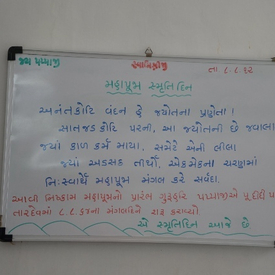 જય પપ્પાજી સ્વામિશ્રીજી તા. ૮.૮.૬૨
મહાપ્રૂમ સ્મૃતિદિન
અનંતકોટિ વંદન હે જ્યોતના પ્રણેતા !
સાતજડ કોટિ પરની, આ જ્યોતની છે જવાલા
જ્યાં કાળ કર્મ માયા, સમેટે એની લીલા
જ્યાં અડસઠ તીર્થો, એકમેકના ચરણમાં
નિઃસ્વાર્થે મહાપ્રૂમ મંગલ કરે સર્વદા.
આવા નિષ્કામ મહાપ્રૂમનો પ્રારંભ ગુરૂહરિ પપ્પાજીએ
તારદેવમાં ૮.૮.૬૭ના મંગલદિને શરૂ કરાવ્યો
એ સ્મૃતિદિન આજે છે